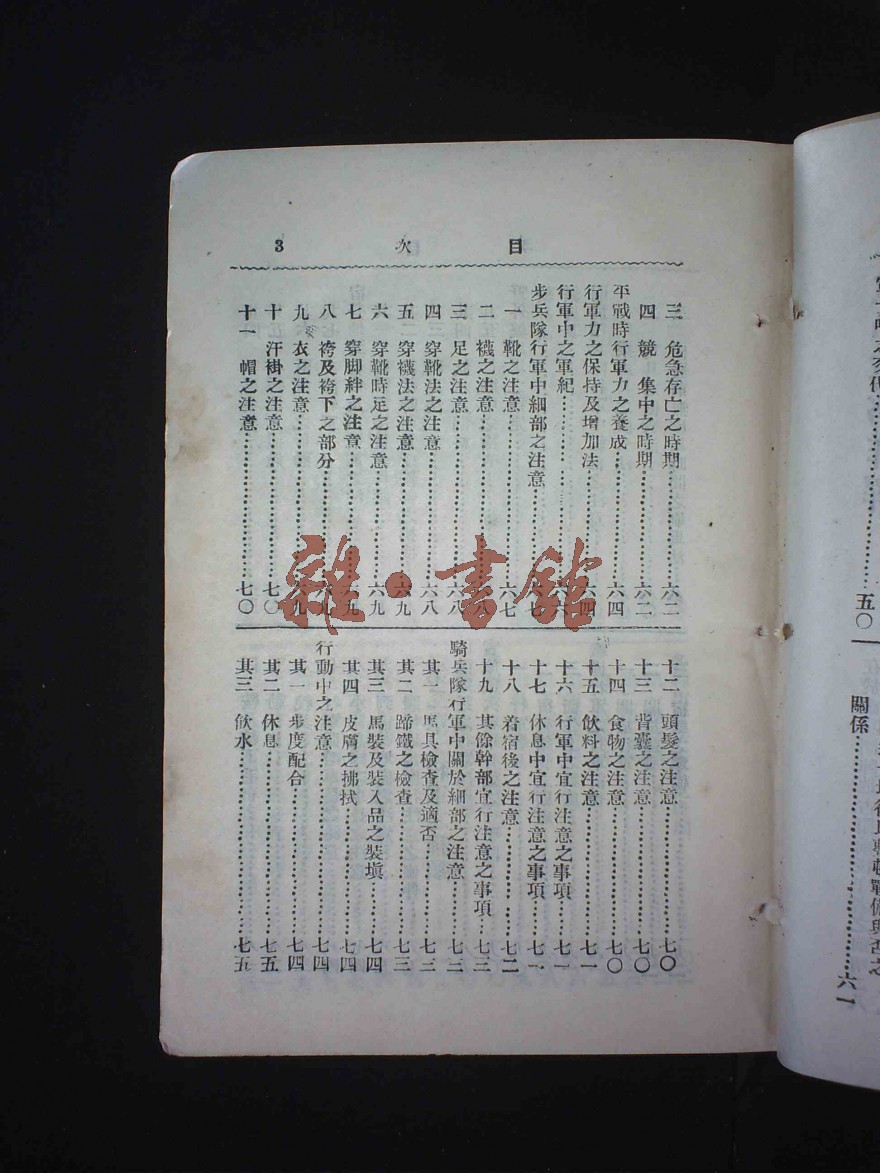 目次 3
三 危急存亡之時期……六二
四 競 集中之時期……六二
平戰時行軍力之養成……六四
行軍力之保持及增加法……六四
行軍中之軍紀……六六
步兵隊行軍中細部之注意……六七
一 靴之注意……六七
二 襪之注意……六八
三 足之注意……六八
四 穿靴法之注意……六八
五 穿襪法之注意……六九
六 穿靴時足之注意……六九
七 穿脚絆之注意……六九
八 袴及袴下之部分……六九
九 衣之注意……六九
十 汗褂之注意……七〇
十一 帽之注意……七〇
十二 頭髮之注意……七〇
十三 背囊之注意……七〇
十四 食物之注意……七〇
十五 飲料之注意……七一
十六 行軍中宜行注意之事項……七一
十七 休息中宜行注意之事項……七一
十八 着宿後之注意……七二
十九 其餘幹部宜行注意之事項……七三
騎兵隊行軍中關於細部之注意……七三
其一 馬具檢查及適否……七三
其二 蹄鐵之檢查……七三
其三 馬裝及裝入品之裝塡……七四
其四 皮膚之拂拭……七四
行動中之注意……七四
其一 步度配合……七四
其二 休息……七五
其三 飲水……七五
五〇
關係……六一
雜·書館